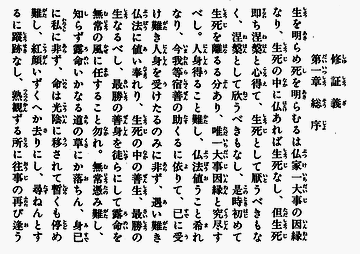 修証義
第一章 総序
生を明らめ死を明らむるは仏家一大事の因縁
なり、生死の中に仏あれば生死なし、但生死
即ち涅槃と心得て、生死として厭うべきもな
く、涅槃として欣うべきもなし、是時初めて
生死を離るる分あり、唯一大事因縁と究尽す
べし。人身得ること難し、仏法値うこと希れ
なり、今我等宿善の助くるに依りて、已に受
け難き人身を受けたるのみに非ず、遇い難き
仏法に値い奉れり、生死の中の善生、最勝の
生なるべし、最勝の善身を徒らにして露命を
無常の風に任すること勿れ。無常憑み難し、
知らず露命いかなる道の草にか落ちん、身已
に私に非ず、命は光陰に移されて暫くも停め
難し、紅顔いずくへか去りにし、尋ねんとす
るに蹤跡なし、熟観ずる所に往事の再び逢う